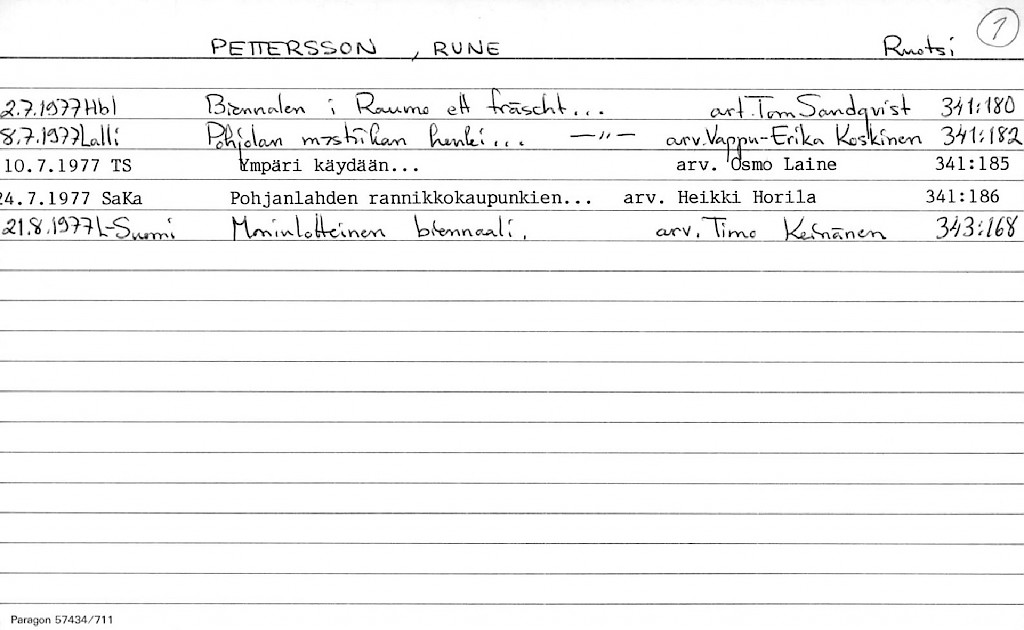 PETTERSSON, RUNE Ruotsi 1
2.7.1977 Hbl Biennalen i Raumo ett fräscht... art. Tom Sandqvist 341:180
8.7.1977 Lalli Pohjolan mystiikan henki... —"— arv. Vappu-Erika Koskinen 341:182
10.7.1977 TS Ympäri käydään... arv. Osmo Laine 341:185
24.7.1977 SaKa Pohjanlahden rannikkokaupunkien... arv. Heikki Horila 341:186
21.8.1977 L-Suomi Moniulotteinen biennaali. arv. Timo Keinänen 343:168
Paragon 57434/711